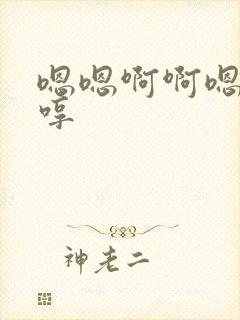 嗯嗯啊啊嗯
哼
神老二